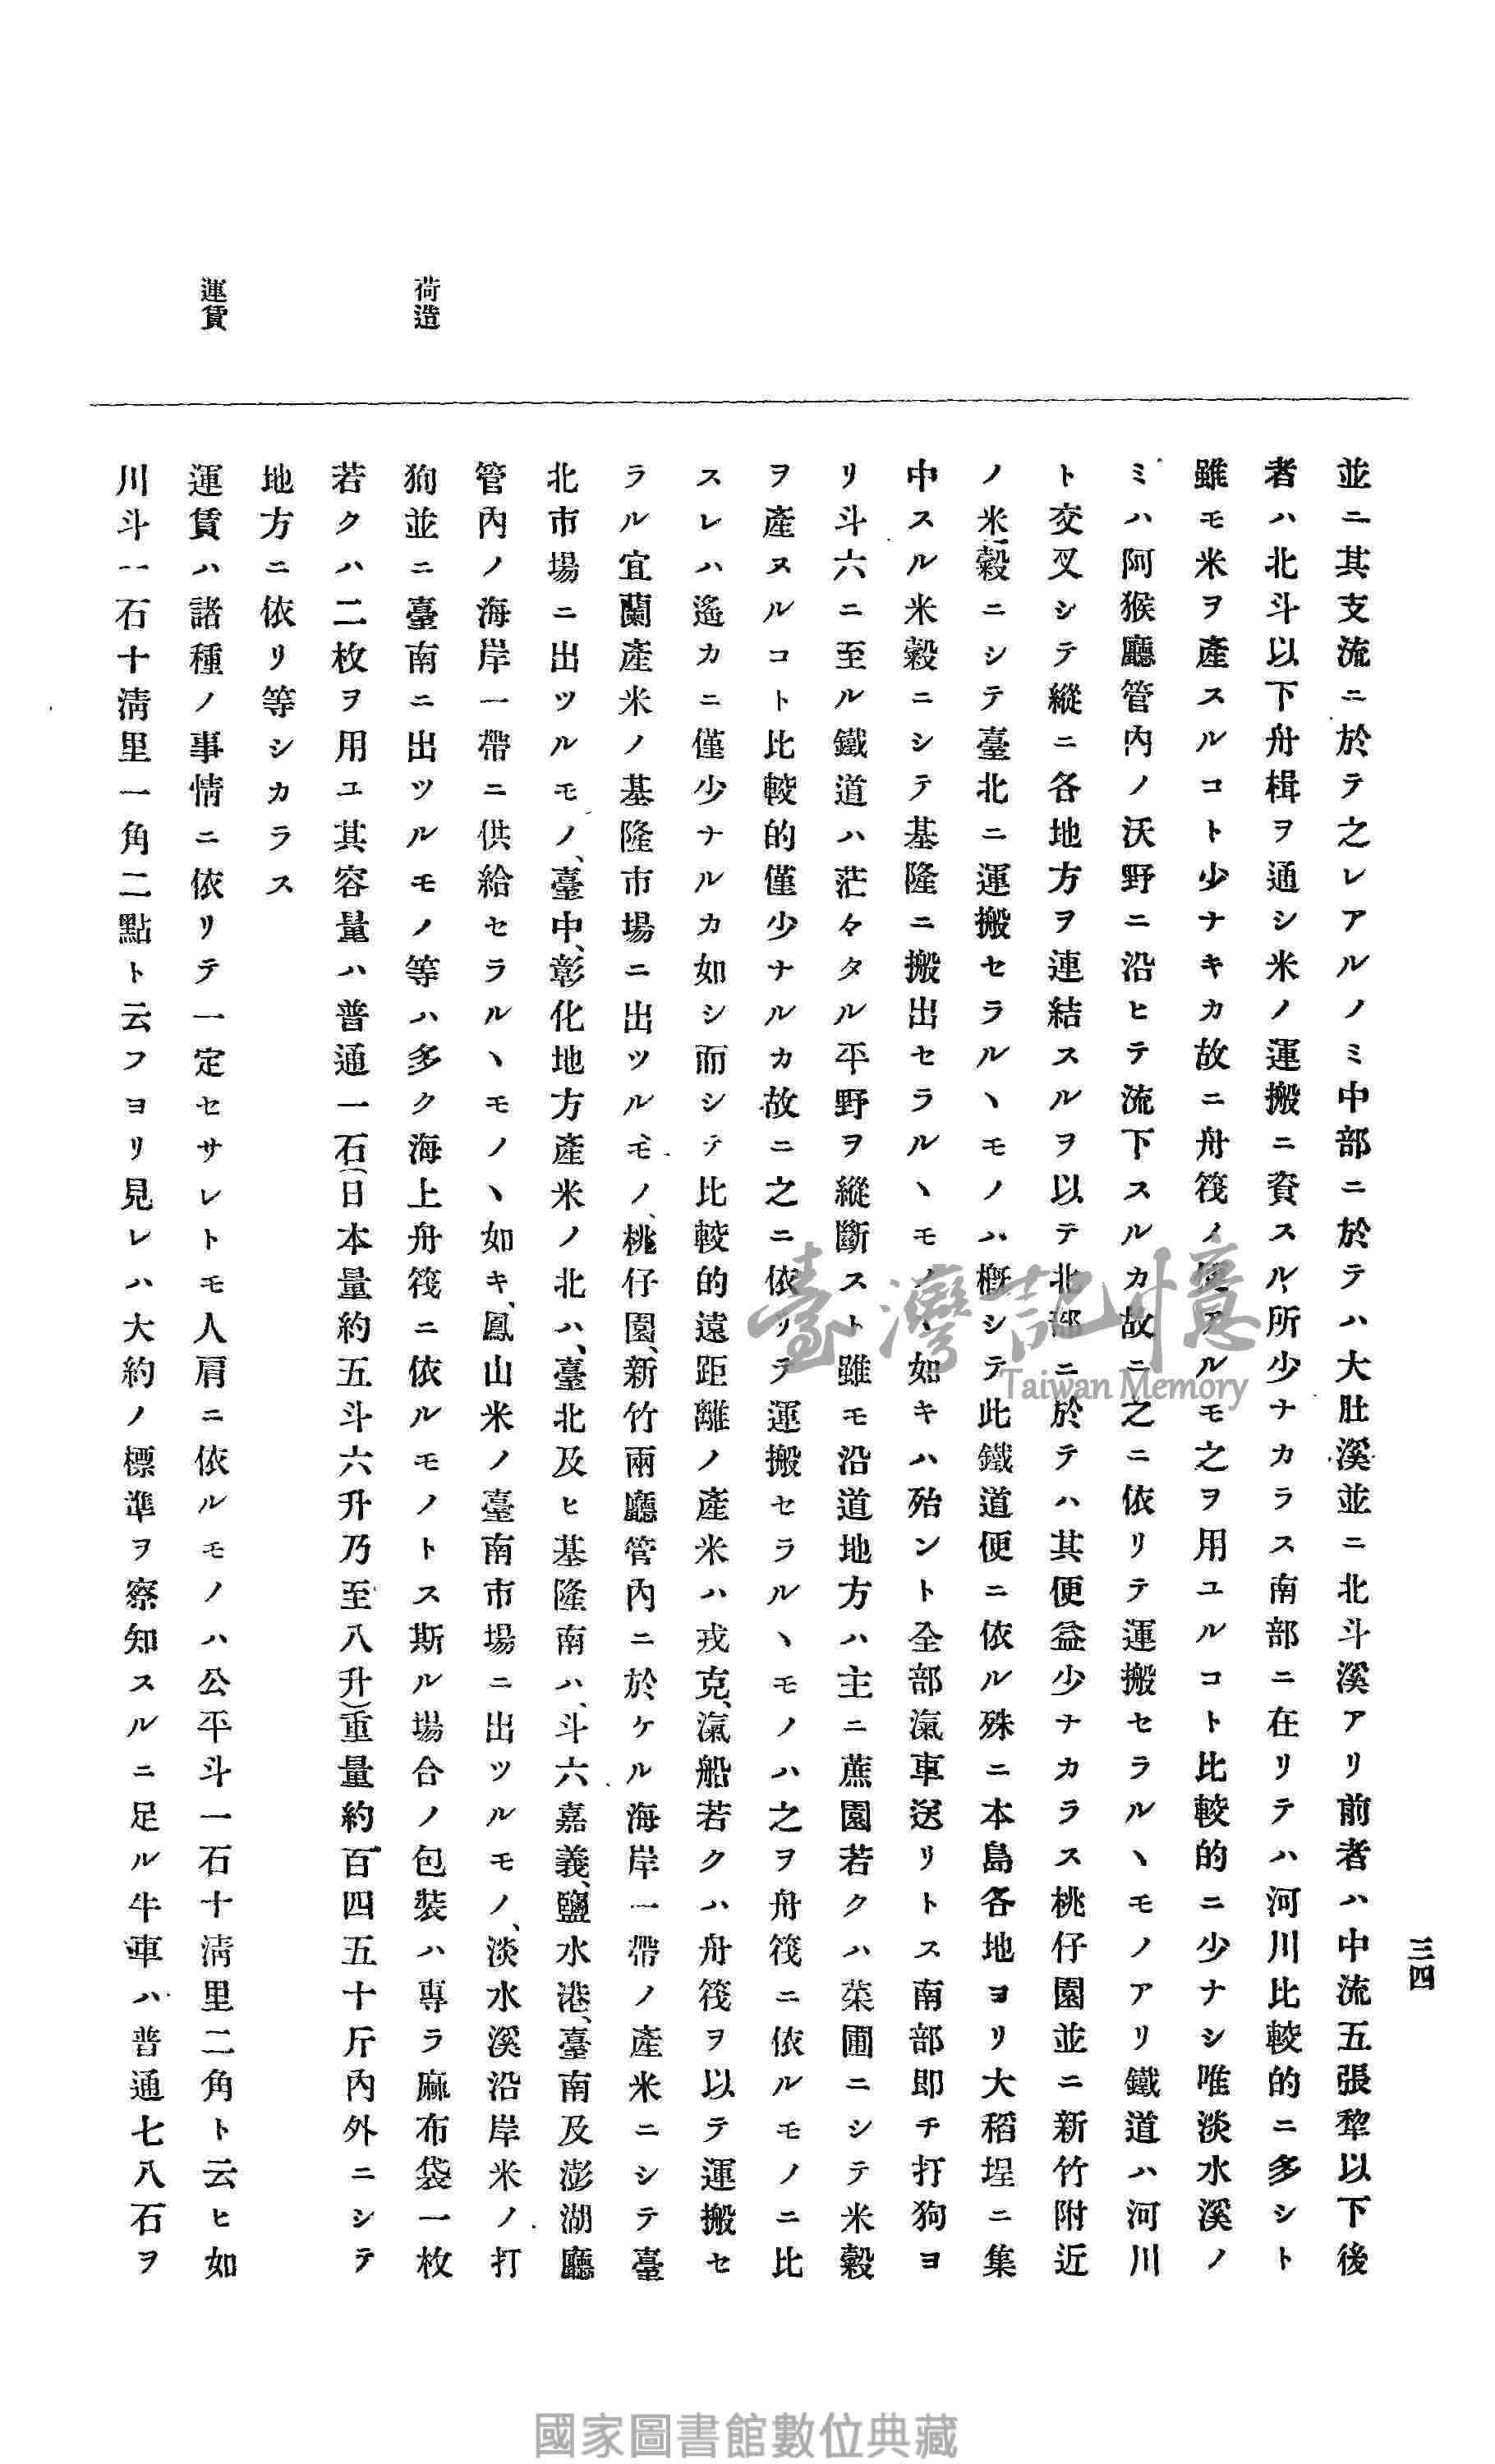 三四
並ニ其支流ニ於テ之レアルノミ中部ニ於テハ大肚溪並ニ北斗溪アリ前者ハ中流五張犂以下後
者ハ北斗以下舟楫ヲ通シ米ノ運搬ニ資スル所少ナカラス南部ニ在リテハ河川比較的ニ多シト
雖モ米ヲ產スルコト少ナキカ故ニ舟筏ノ便アルモ之ヲ用ユルコト比較的ニ少ナシ唯淡水溪ノ
ミハ阿猴廳管內ノ沃野ニ沿ヒテ流下スルカ故ニ之ニ依リテ運搬セラルヽモノアリ鐵道ハ河川
ト交叉シテ縱ニ各地方ヲ連結スルヲ以テ北部ニ於テハ其便益少ナカラス桃仔園並ニ新竹附近
ノ米穀ニシテ臺北ニ運搬セラルヽモノハ槪シテ此鐵道便ニ依ル殊ニ本島各地ヨリ大稻埕ニ集
中スル米穀ニシテ基隆ニ搬出セラルヽモノヽ如キハ殆ント全部滊車送リトス南部卽チ打狗ヨ
リ斗六ニ至ル鐵道ハ茫々タル平野ヲ縱斷スト雖モ沿道地方ハ主ニ蔗園若クハ菜圃ニシテ米穀
ヲ產スルコト比較的僅少ナルカ故ニ之ニ依リテ運搬セラルヽモノハ之ヲ舟筏ニ依ルモノニ比
スレハ遙カニ僅少ナルカ如シ而シテ比較的遠距離ノ產米ハ戎克、滊船若クハ舟筏ヲ以テ運搬セ
ラル宜蘭產米ノ基隆市場ニ出ツルモノ、桃仔園、新竹兩廳管內ニ於ケル海岸一帶ノ產米ニシテ臺
北市場ニ出ツルモノ、臺中、彰化地方產米ノ北ハ、臺北及ヒ基隆南ハ、斗六、嘉義、鹽水港、臺南及澎湖廳
管內ノ海岸一帶ニ供給セラルヽモノヽ如キ、鳳山米ノ臺南市場ニ出ツルモノ、淡水溪沿岸米ノ打
狗並ニ臺南ニ出ツルモノ等ハ多ク海上舟筏ニ依ルモノトス斯ル場合ノ包裝ハ專ラ麻布袋一枚
荷造
若クハ二枚ヲ用ユ其容量ハ普通一石(日本量約五斗六升乃至八升)重量約百四五十斤內外ニシテ
地方ニ依リ等シカラス
運賃ハ諸種ノ事情ニ依リテ一定セサレトモ人肩ニ依ルモノハ公平斗一石十淸里二角ト云ヒ如
運賃
川斗一石十淸里一角二點ト云フヨリ見レハ大約ノ標準ヲ察知スルニ足ル牛車ハ普通七八石ヲ
臺灣記憶
Taiwan Memory
國家圖書館數位典藏